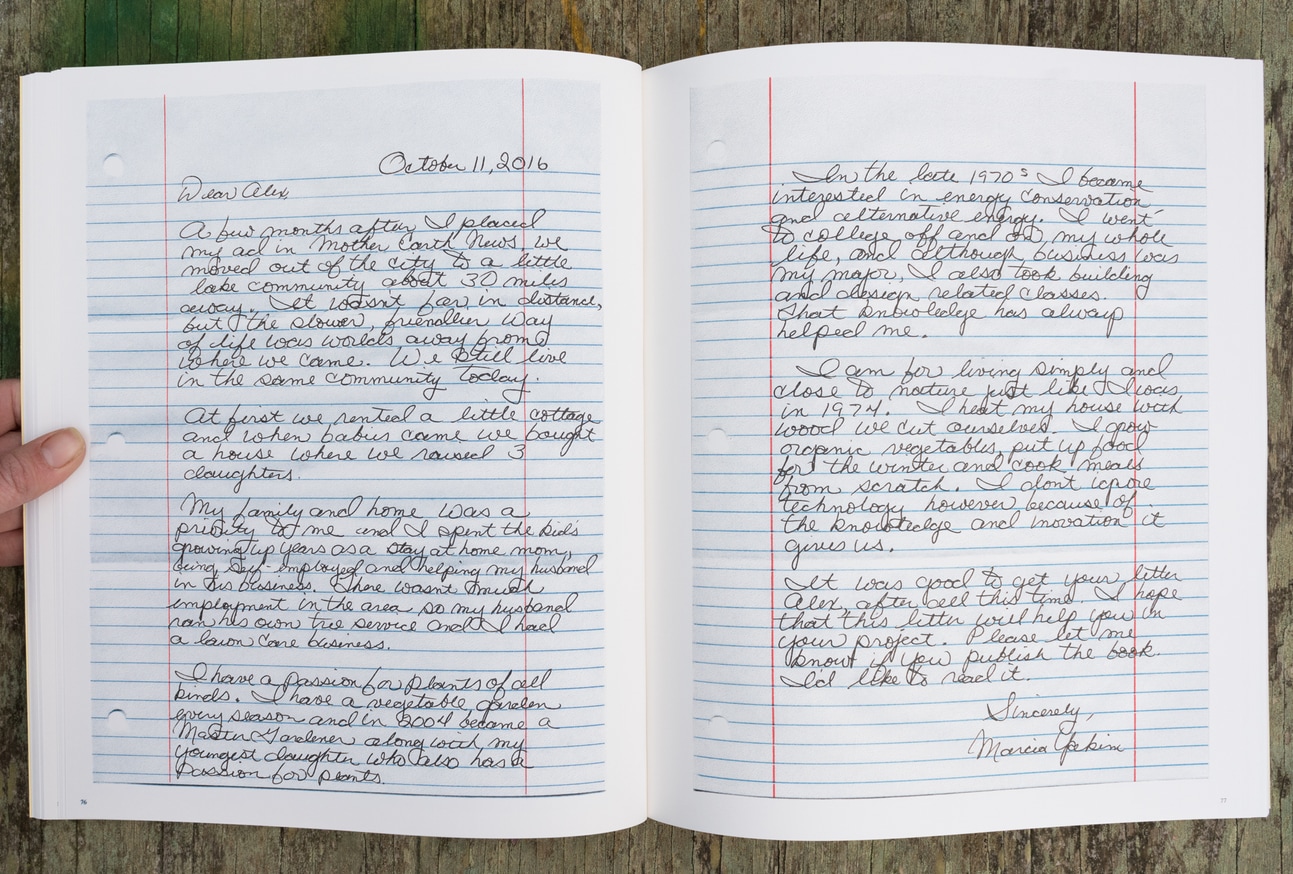 October 11, 2016
Dear Alex,
A few months after I placed
my ad in Mother Earth News, we
moved out of the city to a little
lake community about 30 miles
away. It wasn't far in distance,
but the slower, friendlier way
of life was worlds away from
where we came. We still live
in the same community today.
At first we rented a little cottage
and when babies came we bought
a house where we raised 3
daughters.
My family and home was a
priority to me and I spent the kid's
growing up years as a stay at home mom,
being self-employed and helping my husband
in his business. There wasn't much
employment in the area so my husband
ran his own tree service and I had
a lawn care business.
I have a passion for plants of all
kinds. I have a vegetable garden
every season and in 2004 became a
Master Gardener along with my
youngest daughter who also has a
passion for plants.
76
In the late 1970s I became
interested in energy conservation
and alternative energy. I went
to college off and on my whole
life, and although business was
my major, I also took building
and design related classes.
That knowledge has always
helped me.
I am for living simply and
close to nature just like I was
in 1974. I heat my house with
wood we cut ourselves. I grow
organic vegetables, put up food
for the winter and cook meals
from scratch. I dont ignore
technology however because of
the knowledge and inovation it
gives us.
It was good to get your letter
Alex, after all this time. I hope
that this letter will help you in
your project. Please let me
know if you publish the book.
I'd like to read it.
Sincerely,
Marcia
77